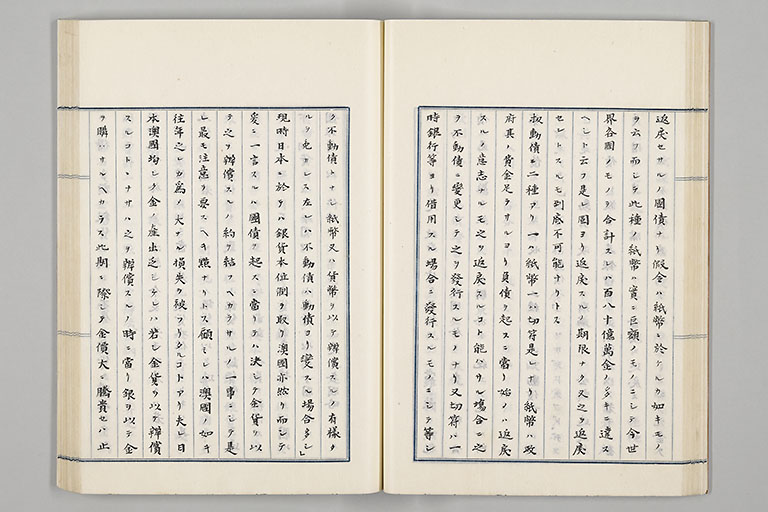 返戻セサルノ國債ナリ假令ハ紙幣ニ於ケルカ如キモノ
ヲ云フ而シテ此種ノ紙幣ハ實ニ巨額ノモノニシテ今世
界各國ノモノヲ合計スレハ百八十億萬金ノ多キニ達ス
ヘシト云フ是レ固ヨリ返戻スルノ期限ナク又之ヲ返戻
セントスルモ到底不可能ナリトス
動債ニ二種アリ一ハ紙幣一ハ切符是レナリ紙幣ハ政
府其ノ資金足ラサルヨリ負債ヲ起スニ當リ始メハ返戻
スルノ意志ナルモ之ヲ返戻スルコト能ハサル場合ニ之
ヲ不動債ニ變更シテ之ヲ發行スルモノナリ又切符ハ一
時銀行等ヨリ借用スル場合ニ發行スルモノニシテ等シ
ク不動債トナシ紙幣又ハ貨幣ヲ以テ辨償スルノ有樣タ
ルヲ免カレス左レハ不動債ハ動債ヨリ變スル場合多シ」
現時日本ニ於テハ銀貨本位制ヲ取リ澳國亦然リ而シテ
爰ニ一言スルハ國債ヲ起スニ當リテハ決シテ金貨ヲ以
テ之ヲ辨償スルノ約ヲ結フヘカラサルノ一事ニシテ是
レ最モ注意ヲ要スヘキ點ナリトス顧ミレハ澳國ノ如キ
往年之レカ爲メ大ナル損失ヲ被フリタルコトアリ夫レ日
本澳國均シク金ノ産出乏シケレハ若シ金貨ヲ以テ辨償
スルコトトナサハ之ヲ辨償スルノ時ニ當リ銀ヲ以テ金
ヲ購ハサルヘカラス此期ニ際シテ金價大ニ騰貴セハ止